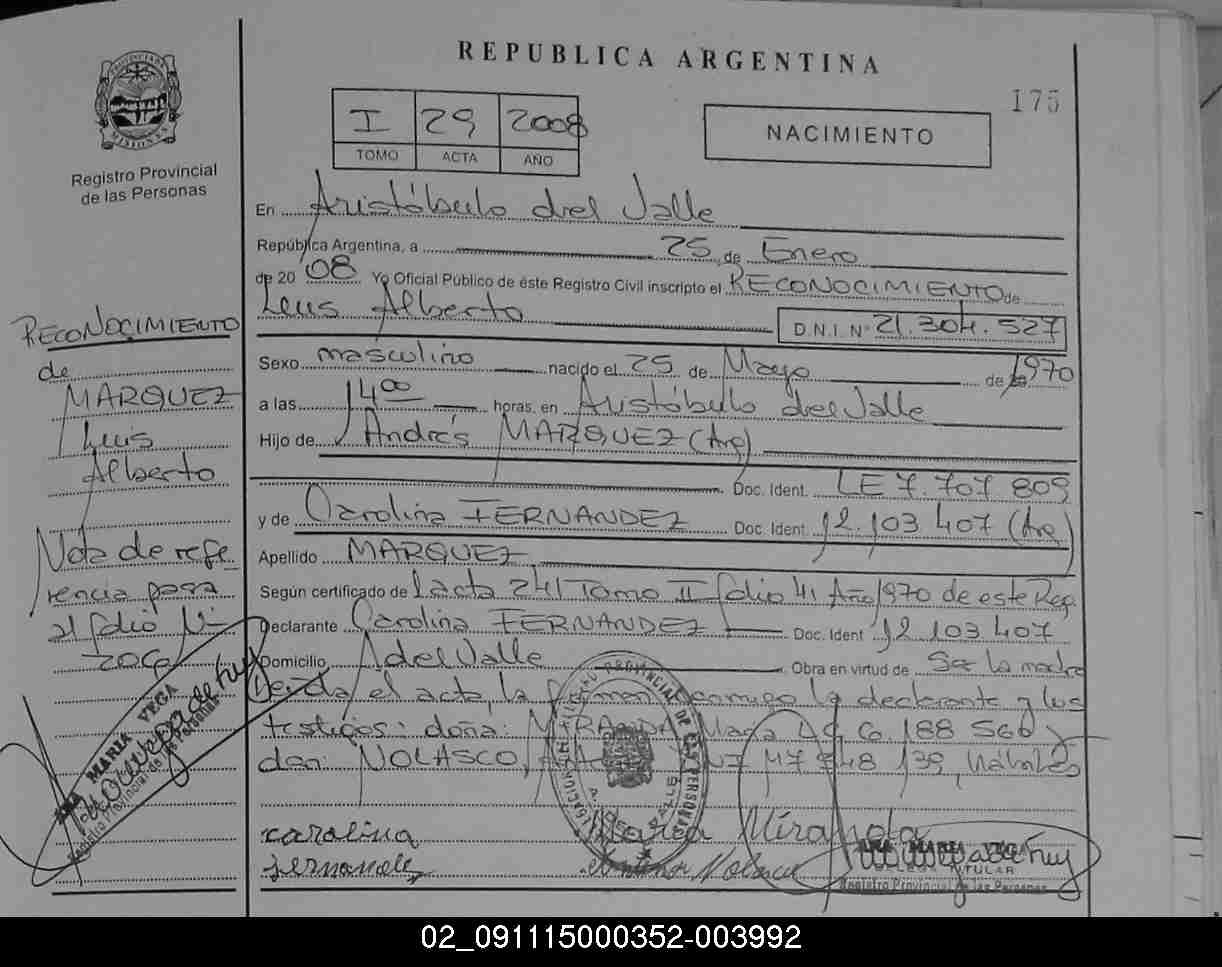 REPUBLICA ARGENTINA
175
PROVINCIA DE MISIONES
Registro Provincial
de las Personas
I 29 2008
TOMO ACTA AÑO
NACIMIENTO
En Aristóbulo del Valle
República Argentina, a 25 de Enero
de 2008 Yo Oficial Público de éste Registro Civil inscripto el RECONOCIMIENTO de
Luis Alberto D.N.I. Nº 21.304.527
Sexo masculino nacido el 25 de Mayo de 1970
a las 14 00 horas, en Aristóbulo del Valle
Hijo de Andrés MARQUEZ (Arg)
Doc. Ident. LE 7.707 809
y de Carolina FERNANDEZ Doc. Ident. 12.103 407 (Arg)
Apellido MARQUEZ
Según certificado de acta 241 Tomo II folio 41 Año 1970 de este Reg.
Declarante Carolina FERNANDEZ Doc. Ident 12.103.407
Domicilio A del Valle Obra en virtud de Ser la madre
Leída el acta, la firman conmigo la declarante y los
testigos: doña: MIRANDA, María 6 188 560 y
don: NOLASCO, 748 139, hábiles
carolina
fernandez
Maria Miranda
Nolasco
ANA MARIA VEGA
TITULAR
Registro Provincial de las Personas
RECONOCIMIENTO
de
MARQUEZ
Luis
Alberto
Nota de refe
rencia pasa
al folio Nº
200
ANA MARIA VEGA
Registro Provincial de las Personas
02_091115000352-003992